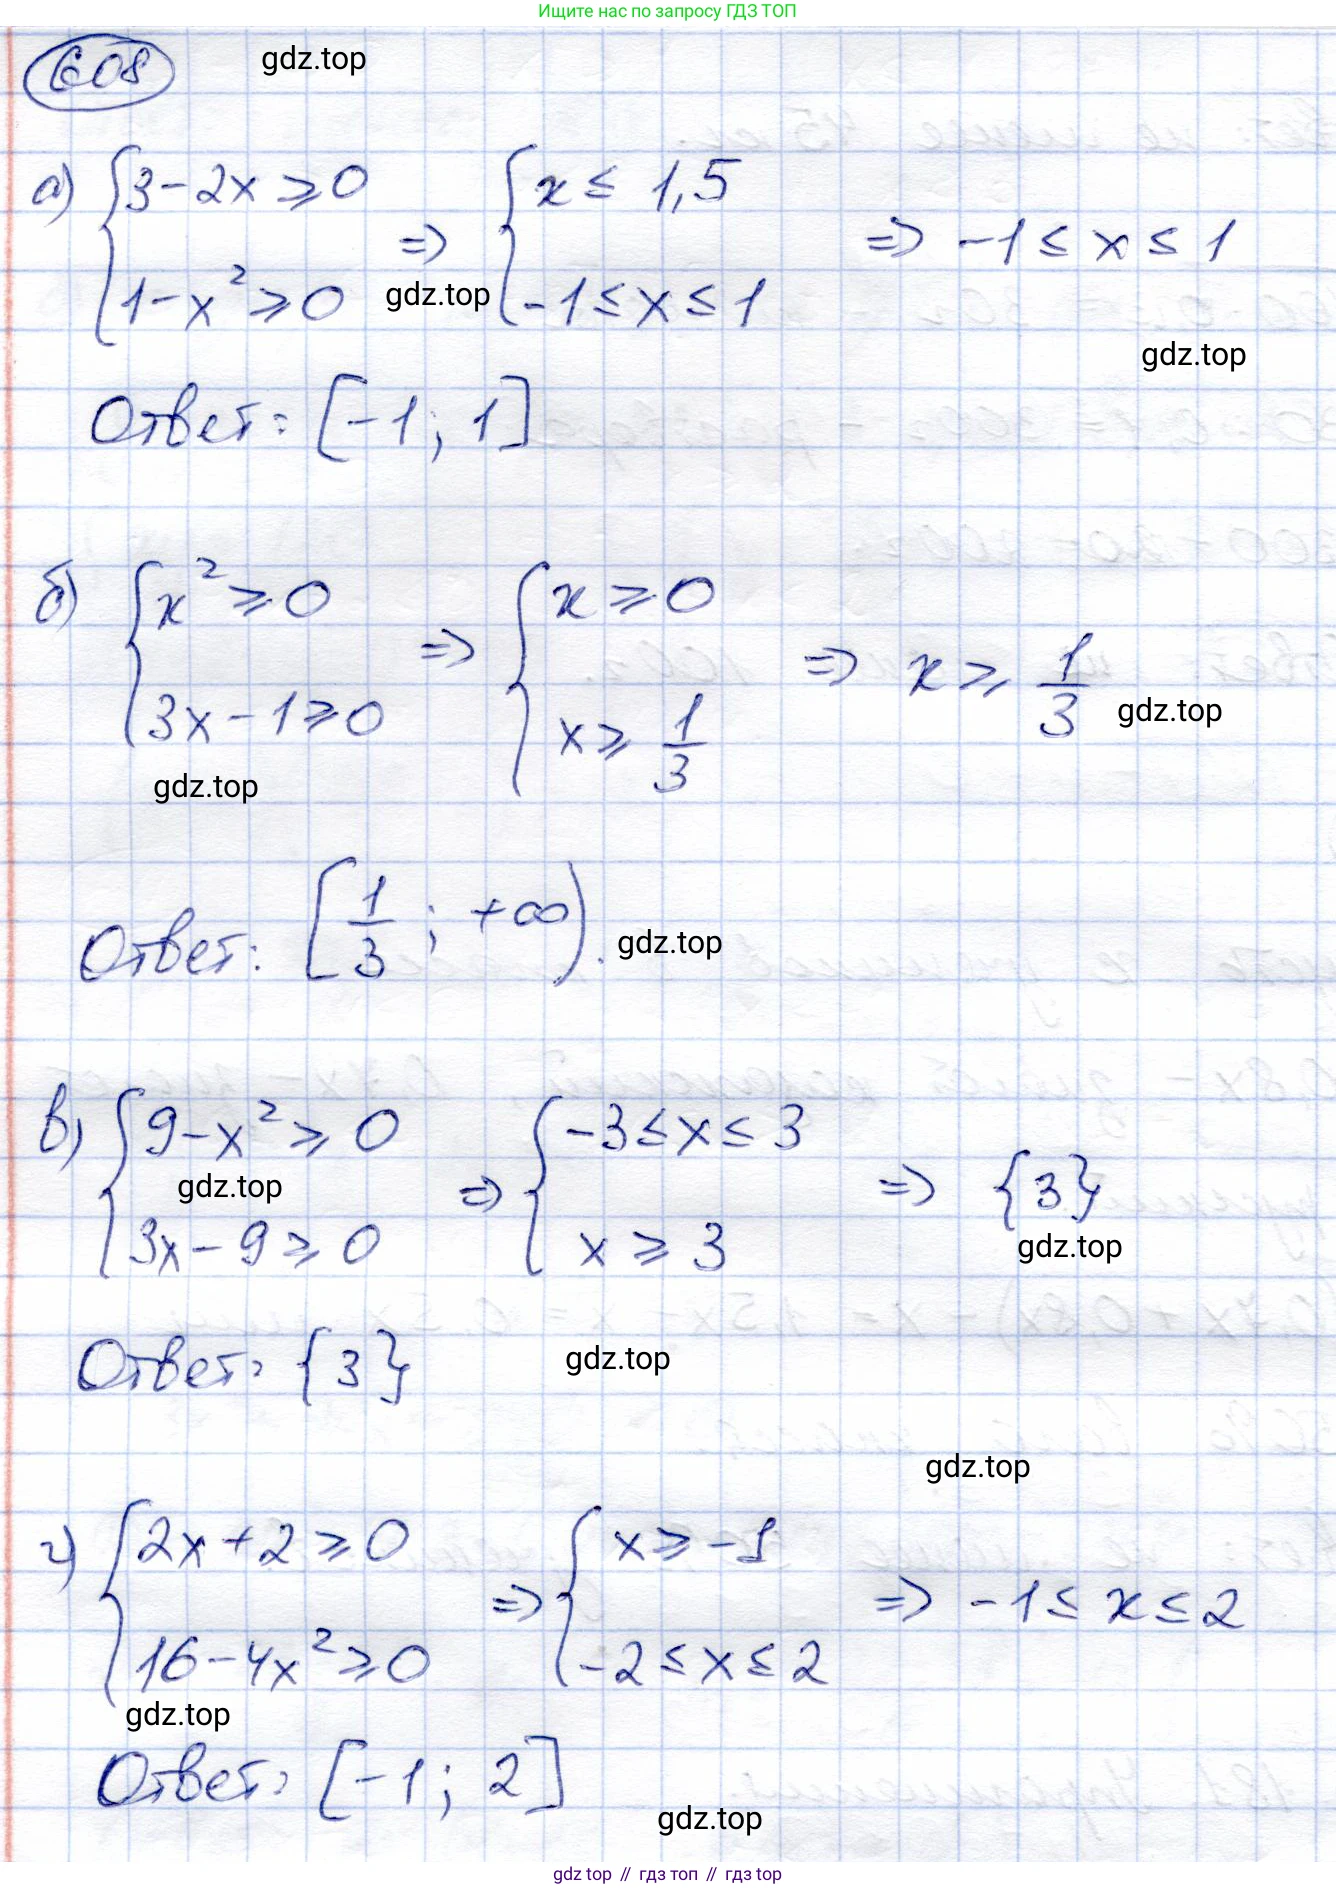 Ищите нас по запросу ГДЗ ТОП
608 gdz.top
а) { 3 - 2x ⩾ 0 ; 1 - x² ⩾ 0 => { x ≤ 1,5 ; -1 ≤ x ≤ 1 => -1 ≤ x ≤ 1
gdz.top
gdz.top
Ответ: [-1; 1]
б) { x² ⩾ 0 ; 3x - 1 ⩾ 0 => { x ⩾ 0 ; x ⩾ 1/3 => x ⩾ 1/3
gdz.top
gdz.top
Ответ: [1/3; +∞).
gdz.top
в) { 9 - x² ⩾ 0 ; 3x - 9 ⩾ 0 => { -3 ≤ x ≤ 3 ; x ⩾ 3 => {3}
gdz.top
gdz.top
Ответ: {3}
gdz.top
gdz.top
г) { 2x + 2 ⩾ 0 ; 16 - 4x² ⩾ 0 => { x ⩾ -1 ; -2 ≤ x ≤ 2 => -1 ≤ x ≤ 2
gdz.top
Ответ: [-1; 2]
gdz.top
gdz top // гдз топ // гдз top